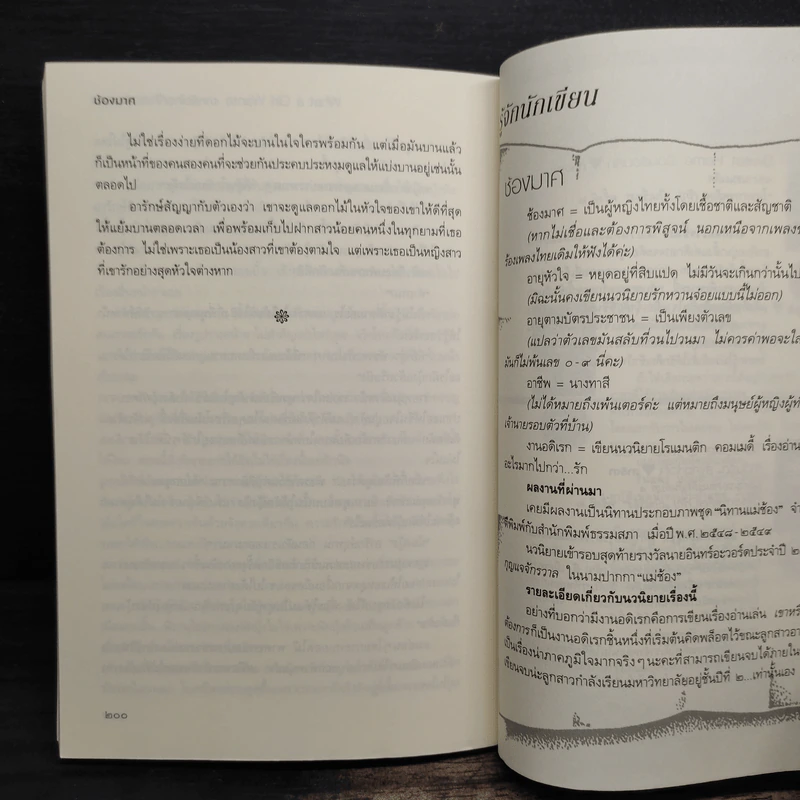 ช้องมาศ
ไม่ใช่เรื่องง่ายที่ดอกไม้จะบานในใจใครพร้อมกัน แต่เมื่อมันบานแล้ว
ก็เป็นหน้าที่ของคนสองคนที่จะช่วยกันประคบประหงมดูแลให้แบ่งบานอยู่เช่นนั้น
ตลอดไป
อารักษ์สัญญากับตัวเองว่า เขาจะดูแลดอกไม้ในหัวใจของเขาให้ดีที่สุด
ให้แย้มบานตลอดเวลา เพื่อพร้อมเก็บไปฝากสาวน้อยคนหนึ่งในทุกยามที่เธอ
ต้องการ ไม่ใช่เพราะเธอเป็นน้องสาวที่เขาต้องตามใจ แต่เพราะเธอเป็นหญิงสาว
ที่เขารักอย่างสุดหัวใจต่างหาก
๒๐๐
รู้จักนักเขียน
ช้องมาศ
ช้องมาศ = เป็นผู้หญิงไทยทั้งโดยเชื้อชาติและสัญชาติ
(หากไม่เชื่อและต้องการพิสูจน์ นอกเหนือจากเพลงช
ร้องเพลงไทยเดิมให้ฟังได้ค่ะ)
อายุหัวใจ = หยุดอยู่ที่สิบแปด ไม่มีวันจะเกินกว่านั้นไป
(มิฉะนั้นคงเขียนนวนิยายรักหวานจ๋อยแบบนี้ไม่ออก)
อายุตามบัตรประชาชน = เป็นเพียงตัวเลข
(แปลว่าตัวเลขมันสลับที่วนไปวนมา ไม่ควรค่าพอจะใส
มันก็ไม่พ้นเลข ๐-๙ นี่คะ)
อาชีพ = นางทาสี
(ไม่ได้หมายถึงเพ้นเตอร์ค่ะ แต่หมายถึงมนุษย์ผู้หญิงผู้ท
เจ้านายรอบตัวที่บ้าน)
งานอดิเรก = เขียนนวนิยายโรแมนติก คอมเมดี้ เรื่องอ่าน
อะไรมากไปกว่า...รัก
ผลงานที่ผ่านมา
เคยมีผลงานเป็นนิทานประกอบภาพชุด “นิทานแม่ช้อง” จำ
ตีพิมพ์กับสำนักพิมพ์ธรรมสภา เมื่อปี พ.ศ. ๒๕๔๘-๒๕๔๙
นวนิยายเข้ารอบสุดท้ายรางวัลนายอินทร์อะวอร์ดประจำปี ๒
กุญแจจักรวาล ในนามปากกา “แม่ช้อง”
รายละเอียดเกี่ยวกับนวนิยายเรื่องนี้
อย่างที่บอกว่ามีงานอดิเรกคือการเขียนเรื่องอ่านเล่น เขาหรื
ต้องการ ก็เป็นงานอดิเรกชิ้นหนึ่งที่เริ่มต้นคิดพล็อตไว้ขณะลูกสาวอา
เป็นเรื่องน่าภาคภูมิใจมากจริง ๆ นะคะที่สามารถเขียนจบได้ภายใน
เขียนจบน่ะลูกสาวกำลังเรียนมหาวิทยาลัยอยู่ชั้นปีที่ ๒...เท่านั้นเอง